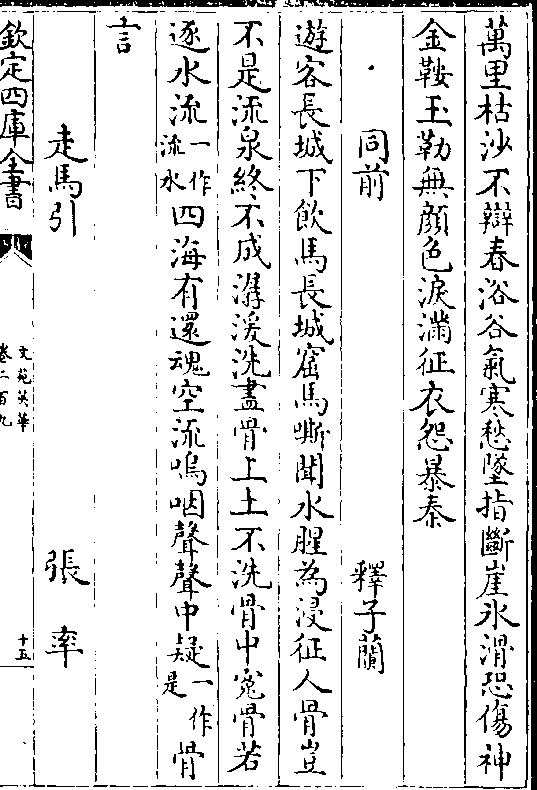 萬里枯沙不辯春浴谷氣寒愁墜指斷崖氷滑恐傷神
金鞍玉勒無顔色淚滿征衣怨暴秦
同前 釋子蘭
遊客長城下飲馬長城窟馬嘶聞水腥為浸征人骨豈
不是流泉終不成潺湲洗盡骨上土不洗骨中寃骨若
逐水流一作流水四海有還魂空流嗚咽聲聲中疑一作是骨
言
走馬引 張率
欽定四庫全書
文苑英華
卷二百九
十五